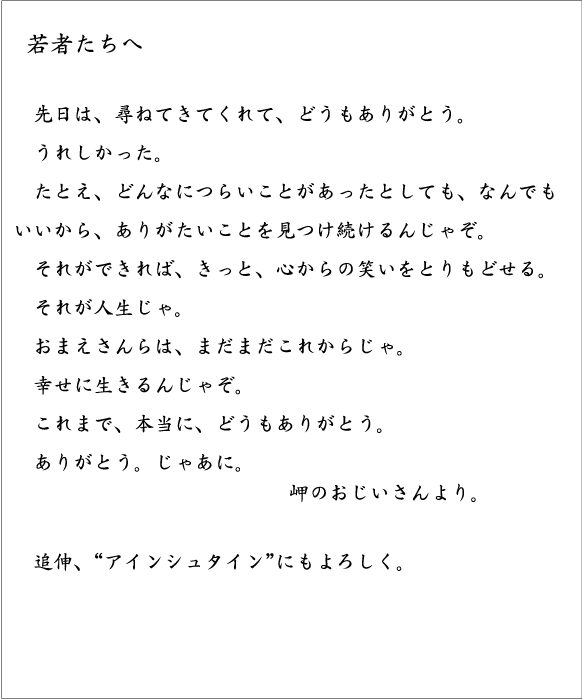 若者たちへ
先日は、尋ねてきてくれて、どうもありがとう。
うれしかった。
たとえ、どんなにつらいことがあったとしても、なんでも
いいから、ありがたいことを見つけ続けるんじゃぞ。
それができれば、きっと、心からの笑いをとりもどせる。
それが人生じゃ。
おまえさんらは、まだまだこれからじゃ。
幸せに生きるんじゃぞ。
これまで、本当に、どうもありがとう。
ありがとう。じゃあに。
岬のおじいさんより。
追伸、“アインシュタイン”にもよろしく。